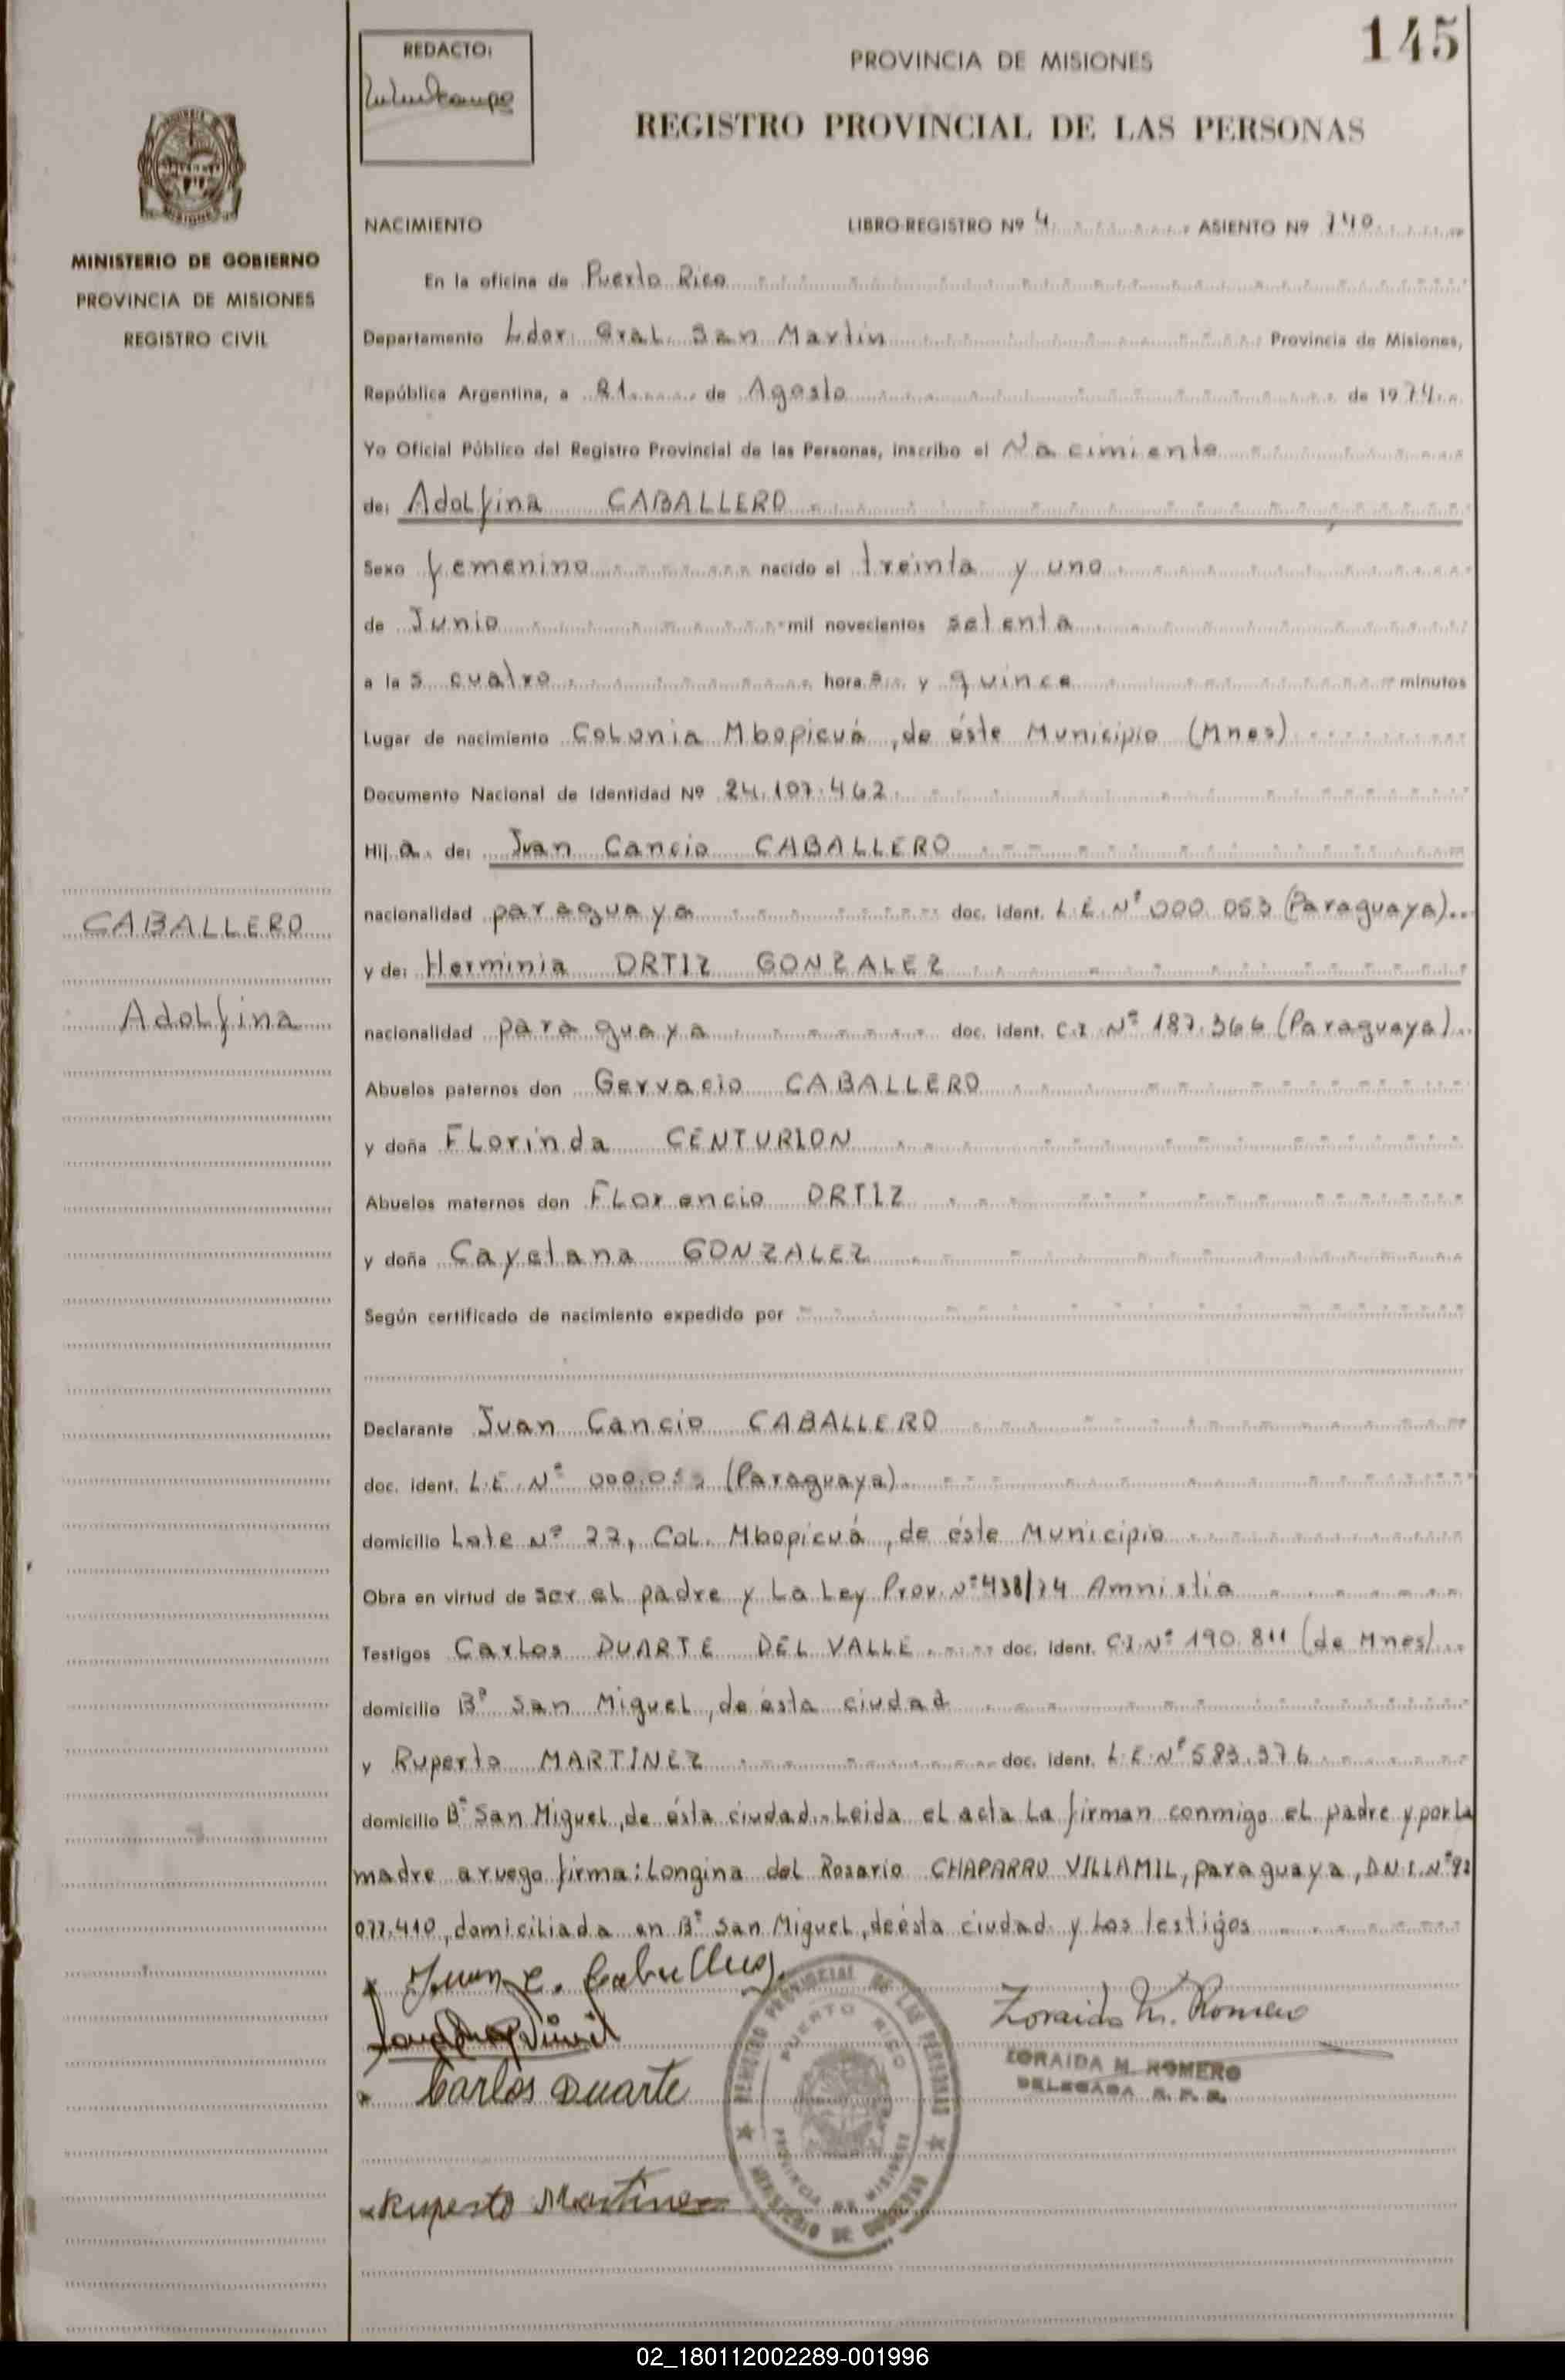 145
REDACTO:
PROVINCIA DE MISIONES
REGISTRO PROVINCIAL DE LAS PERSONAS
MINISTERIO DE GOBIERNO
PROVINCIA DE MISIONES
REGISTRO CIVIL
NACIMIENTO LIBRO REGISTRO Nº 4 ASIENTO Nº 740
En la oficina de Puerto Rico
Departamento Ldor. Gral. San Martín Provincia de Misiones,
República Argentina, a 21 de Agosto de 1974
Yo Oficial Público del Registro Provincial de las Personas, inscribo el Nacimiento
de: Adolfina CABALLERO
Sexo femenino nacido el treinta y uno
de Junio mil novecientos setenta
a las cuatro horas y quince minutos
Lugar de nacimiento Colonia Mbopicuá, de éste Municipio (Mnes)
Documento Nacional de Identidad Nº 24.107.462
Hija de: Juan Cancio CABALLERO
nacionalidad paraguaya doc. ident. L.E. Nº 000.053 (Paraguaya)
CABALLERO
y de: Herminia ORTIZ GONZALEZ
Adolfina
nacionalidad paraguaya doc. ident. C.I. Nº 187.366 (Paraguaya)
Abuelos paternos don Gervacio CABALLERO
y doña Florinda CENTURION
Abuelos maternos don Florencio ORTIZ
y doña Cayetana GONZALEZ
Según certificado de nacimiento expedido por
Declarante Juan Cancio CABALLERO
doc. ident. L.E. Nº 000.053 (Paraguaya)
domicilio Lote Nº 22, Col. Mbopicuá, de éste Municipio
Obra en virtud de ser el padre y La Ley Prov. Nº 438/74 Amnistia
Testigos Carlos DUARTE DEL VALLE doc. ident. C.I. Nº 190.811 (de Mnes)
domicilio Bº San Miguel, de ésta ciudad
y Ruperto MARTINEZ doc. ident. L.E. Nº 583.376
domicilio Bº San Miguel, de ésta ciudad. Leida el acta La firman conmigo el padre y por La
madre a ruego firma: Longina del Rosario CHAPARRO VILLAMIL, paraguaya, D.N.I. Nº 92
077.410, domiciliada en Bº San Miguel, de ésta ciudad y Los testigos
Juan C. Caballero
Zoraida M. Romero
ZORAIDA M. ROMERO
DELEGADA R. P. P.
Carlos Duarte
Ruperto Martinez
REGISTRO PROVINCIAL DE LAS PERSONAS
PUERTO RICO
PROVINCIA DE MISIONES
MINISTERIO DE GOBIERNO
02_180112002289-001996